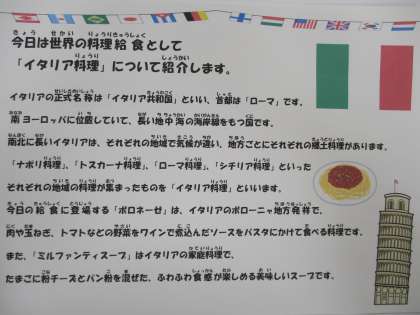 今日は世界の料理給食として
「イタリア料理」について紹介します。
イタリアの正式名称は「イタリア共和国」といい、首都は「ローマ」です。
南ヨーロッパに位置していて、長い地中海の海岸線をもつ国です。
南北に長いイタリアは、それぞれの地域で気候が違い、地方ごとにそれぞれの郷土料理があります。
「ナポリ料理」、「トスカーナ料理」、「ローマ料理」、「シチリア料理」といった
それぞれの地域の料理が集まったものを「イタリア料理」といいます。
今日の給食に登場する「ボロネーゼ」は、イタリアのボローニャ地方発祥で、
肉や玉ねぎ、トマトなどの野菜をワインで煮込んだソースをパスタにかけて食べる料理です。
また、「ミルファンティスープ」はイタリアの家庭料理で、
たまごに粉チーズとパン粉を混ぜた、ふわふわ食感が楽しめる美味しいスープです。